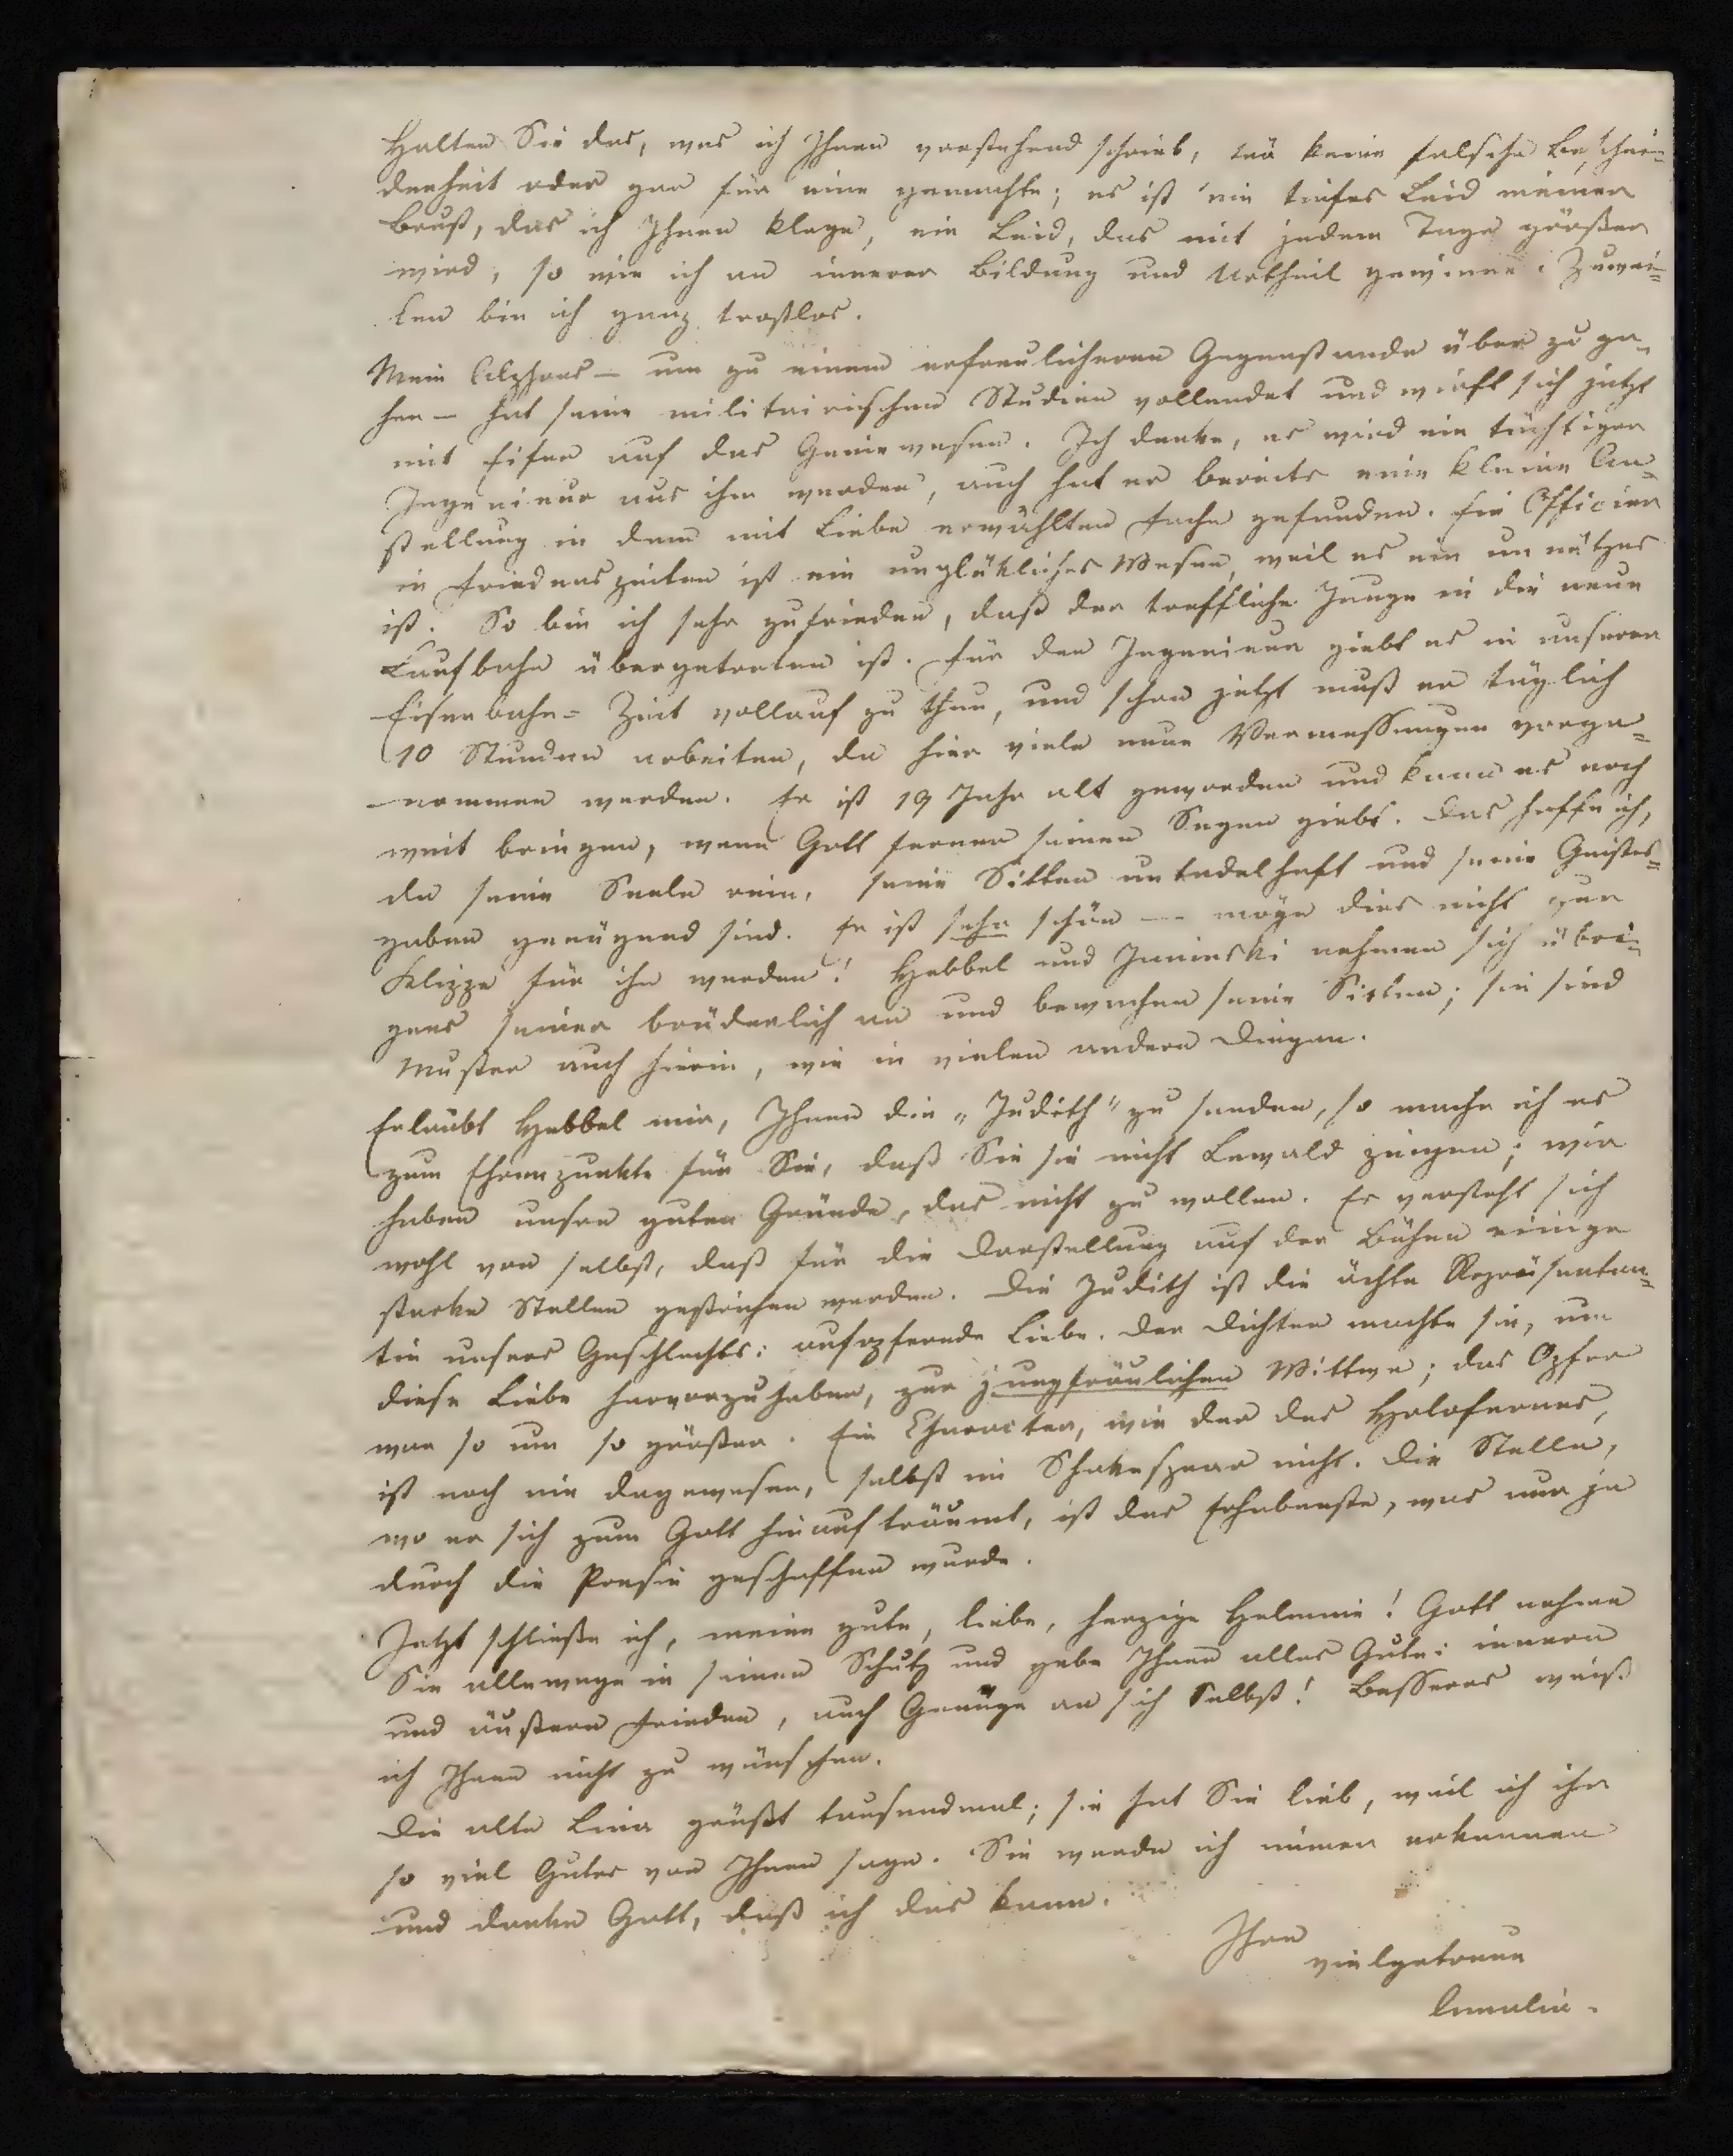 Halten Sie das, was ich Ihnen vorstehend schrieb, für keine falsche Beschei-
denheit oder gar für eine gemachte; es ist ein tiefes Leid meiner
Brust, das ich Ihnen klage, ein Leid, das mit jedem Tage größer
wird, so wie ich an innerer Bildung und Urtheil gewinne. Zuwei-
len bin ich ganz trostlos.
Mein Alphons – um zu einem erfreulicheren Gegenstande über zu ge-
hen – hat seine militairischen Studien vollendet und wirft sich jetzt
mit Eifer auf das Geniewesen. Ich denke, es wird ein tüchtiger
Ingenieur aus ihm werden, auch hat er bereits eine kleine An-
stellung in dem mit Liebe erwählten Fache gefunden. Ein Officier
in Friedenszeiten ist ein unglükliches Wesen, weil es ein unnützes
ist. So bin ich sehr zufrieden, daß der treffliche Junge in die neue
Laufbahn übergetreten ist. Für den Ingenieur giebt es in unserer
Eisenbahn-Zeit vollauf zu thun, und schon jetzt muß er täglich
10 Stunden arbeiten, da hier viele neue Vermessungen vorge-
nommen werden. Er ist 19 Jahr alt geworden und kann es noch
weit bringen, wenn Gott ferner seinen Segen giebt. Das hoffe ich,
da seine Seele rein, seine Sitten untadelhaft und seine Geistes-
gaben genügend sind. Er ist sehr schön – möge dies nicht zur
Klippe für ihn werden! Hebbel und Janinski nehmen sich übri-
gens seiner brüderlich an und bewachen seine Sitten; sie sind
Muster auch hierin, wie in vielen andern Dingen.
Erlaubt Hebbel mir, Ihnen die „Judith" zu senden, so mache ich es
zum Ehrenpunkte für Sie, daß Sie sie nicht Lewald zeigen; wir
haben unsre guten Gründe, das nicht zu wollen. Es versteht sich
wohl von selbst, daß für die Darstellung auf der Bühne einige
starke Stellen gestrichen werden. Die Judith ist die ächte Repräsentan-
tin unsers Geschlechts: aufopfernde Liebe. Der Dichter machte sie, um
diese Liebe hervorzuheben, zur jungfräulichen Wittwe; das Opfer
war so um so größer. Ein Character, wie der des Holofernes,
ist noch nie dagewesen, selbst im Shakespear nicht. Die Stelle,
wo er sich zum Gott hinauf träumt, ist das Erhabenste, was nur je
durch die Poesie geschaffen wurde.
Jetzt schließe ich, meine gute, liebe, herzige Helmine! Gott nehme
Sie allewege in seinen Schutz und gebe Ihnen alles Gute: innern
und äußern Frieden, auch Genüge an sich Selbst! Besseres weiß
ich Ihnen nicht zu wünschen.
Die alte Lina grüßt tausendmal; sie hat Sie lieb, weil ich ihr
so viel Gutes von Ihnen sage. Sie werde ich immer erkennen
und danke Gott, daß ich das kann.
Ihre
vielgetreue
Amalie.